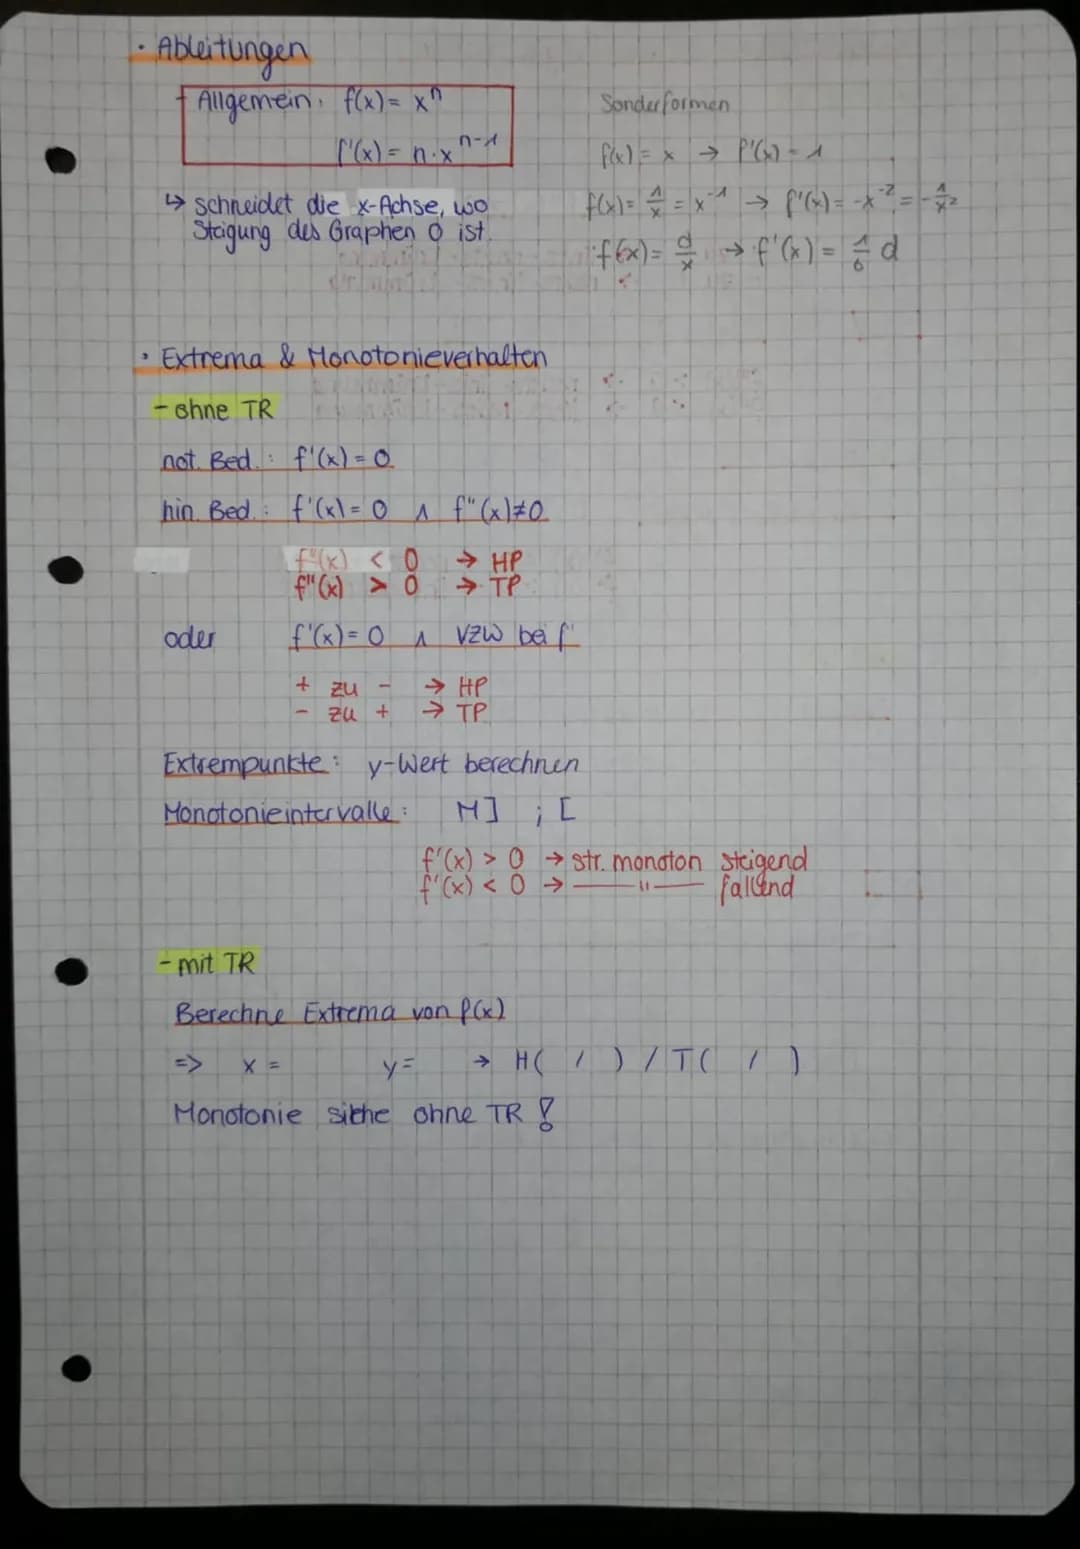 · Ableitungen
Allgemein: f(x) = xⁿ
f'(x) = n·xⁿ⁻¹
↳ schneidet die x-Achse, wo
Steigung des Graphen 0 ist.
Sonderformen
f(x) = x → f'(x) = 1
f(x) = 1/x = x⁻¹ → f'(x) = -x⁻² = -1/x²
f(x) = d/x → f'(x) = 1/6 d
· Extrema & Monotonieverhalten
- ohne TR
not. Bed.: f'(x) = 0
hin. Bed.: f'(x) = 0 ∧ f"(x) ≠ 0
f"(x) < 0 → HP
f"(x) > 0 → TP
oder f'(x) = 0 ∧ VZW bei f'
+ zu - → HP
- zu + → TP
Extrempunkte: y-Wert berechnen
Monotonieintervalle: M] ; [
f'(x) > 0 → str. monoton steigend
f'(x) < 0 → —— " —— fallend
- mit TR
Berechne Extrema von f(x)
=> x = y = → H( / ) / T( / )
Monotonie siehe ohne TR !